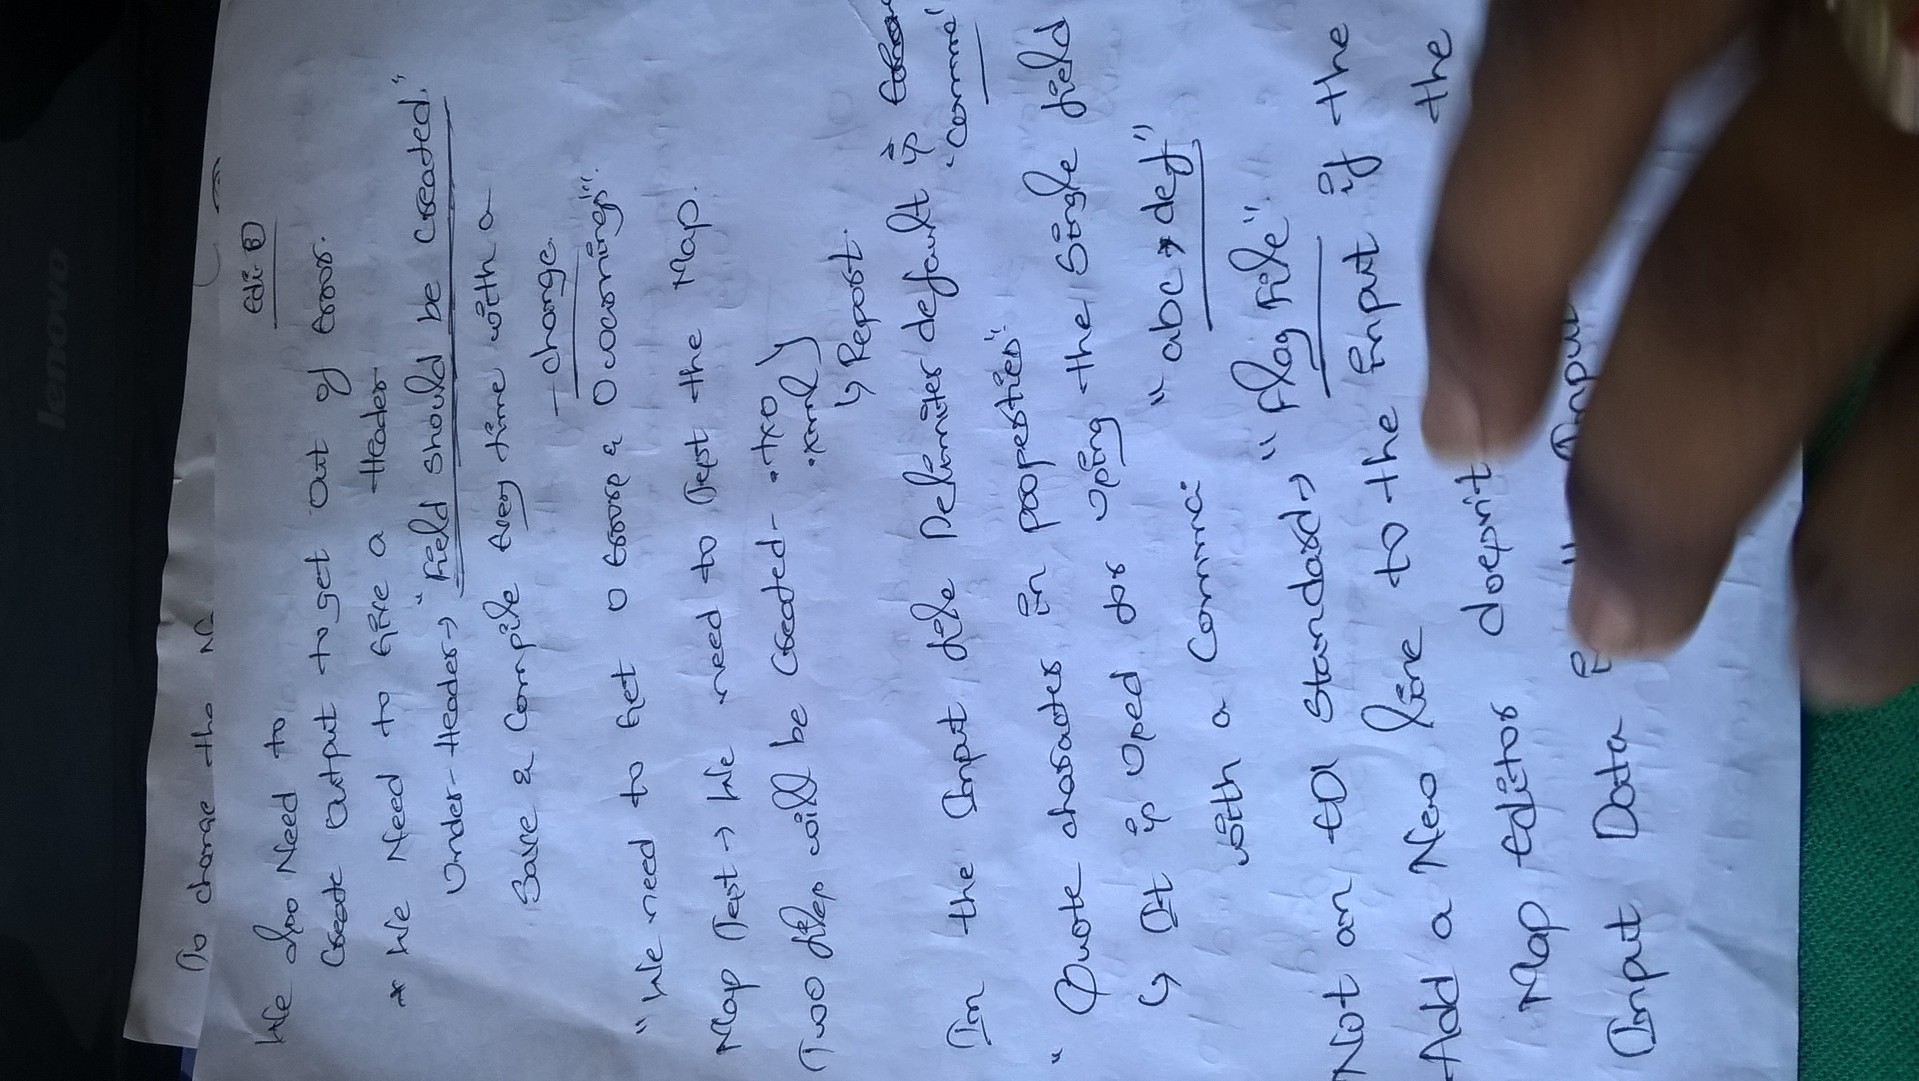 lenovo
To change the
Edi B
We also Need to
Create output to get out of Error.
* We Need to give a Header
Under Header → "Field should be created."
Save & Compile Every time with a
change.
"We need to get 0 Errors & 0 warnings".
Map Test → We need to Test the Map.
Two files will be created - .txo
.xml
↳ Report.
In the Input file Delimiter default is
"comma"
"Quote character in properties".
↳ It is used for using the single field
with a comma. "abc, def"
Not an EDI Standard → "Flag File".
Add a New line to the Input if the
Map Editor doesn't the
Input Data Input